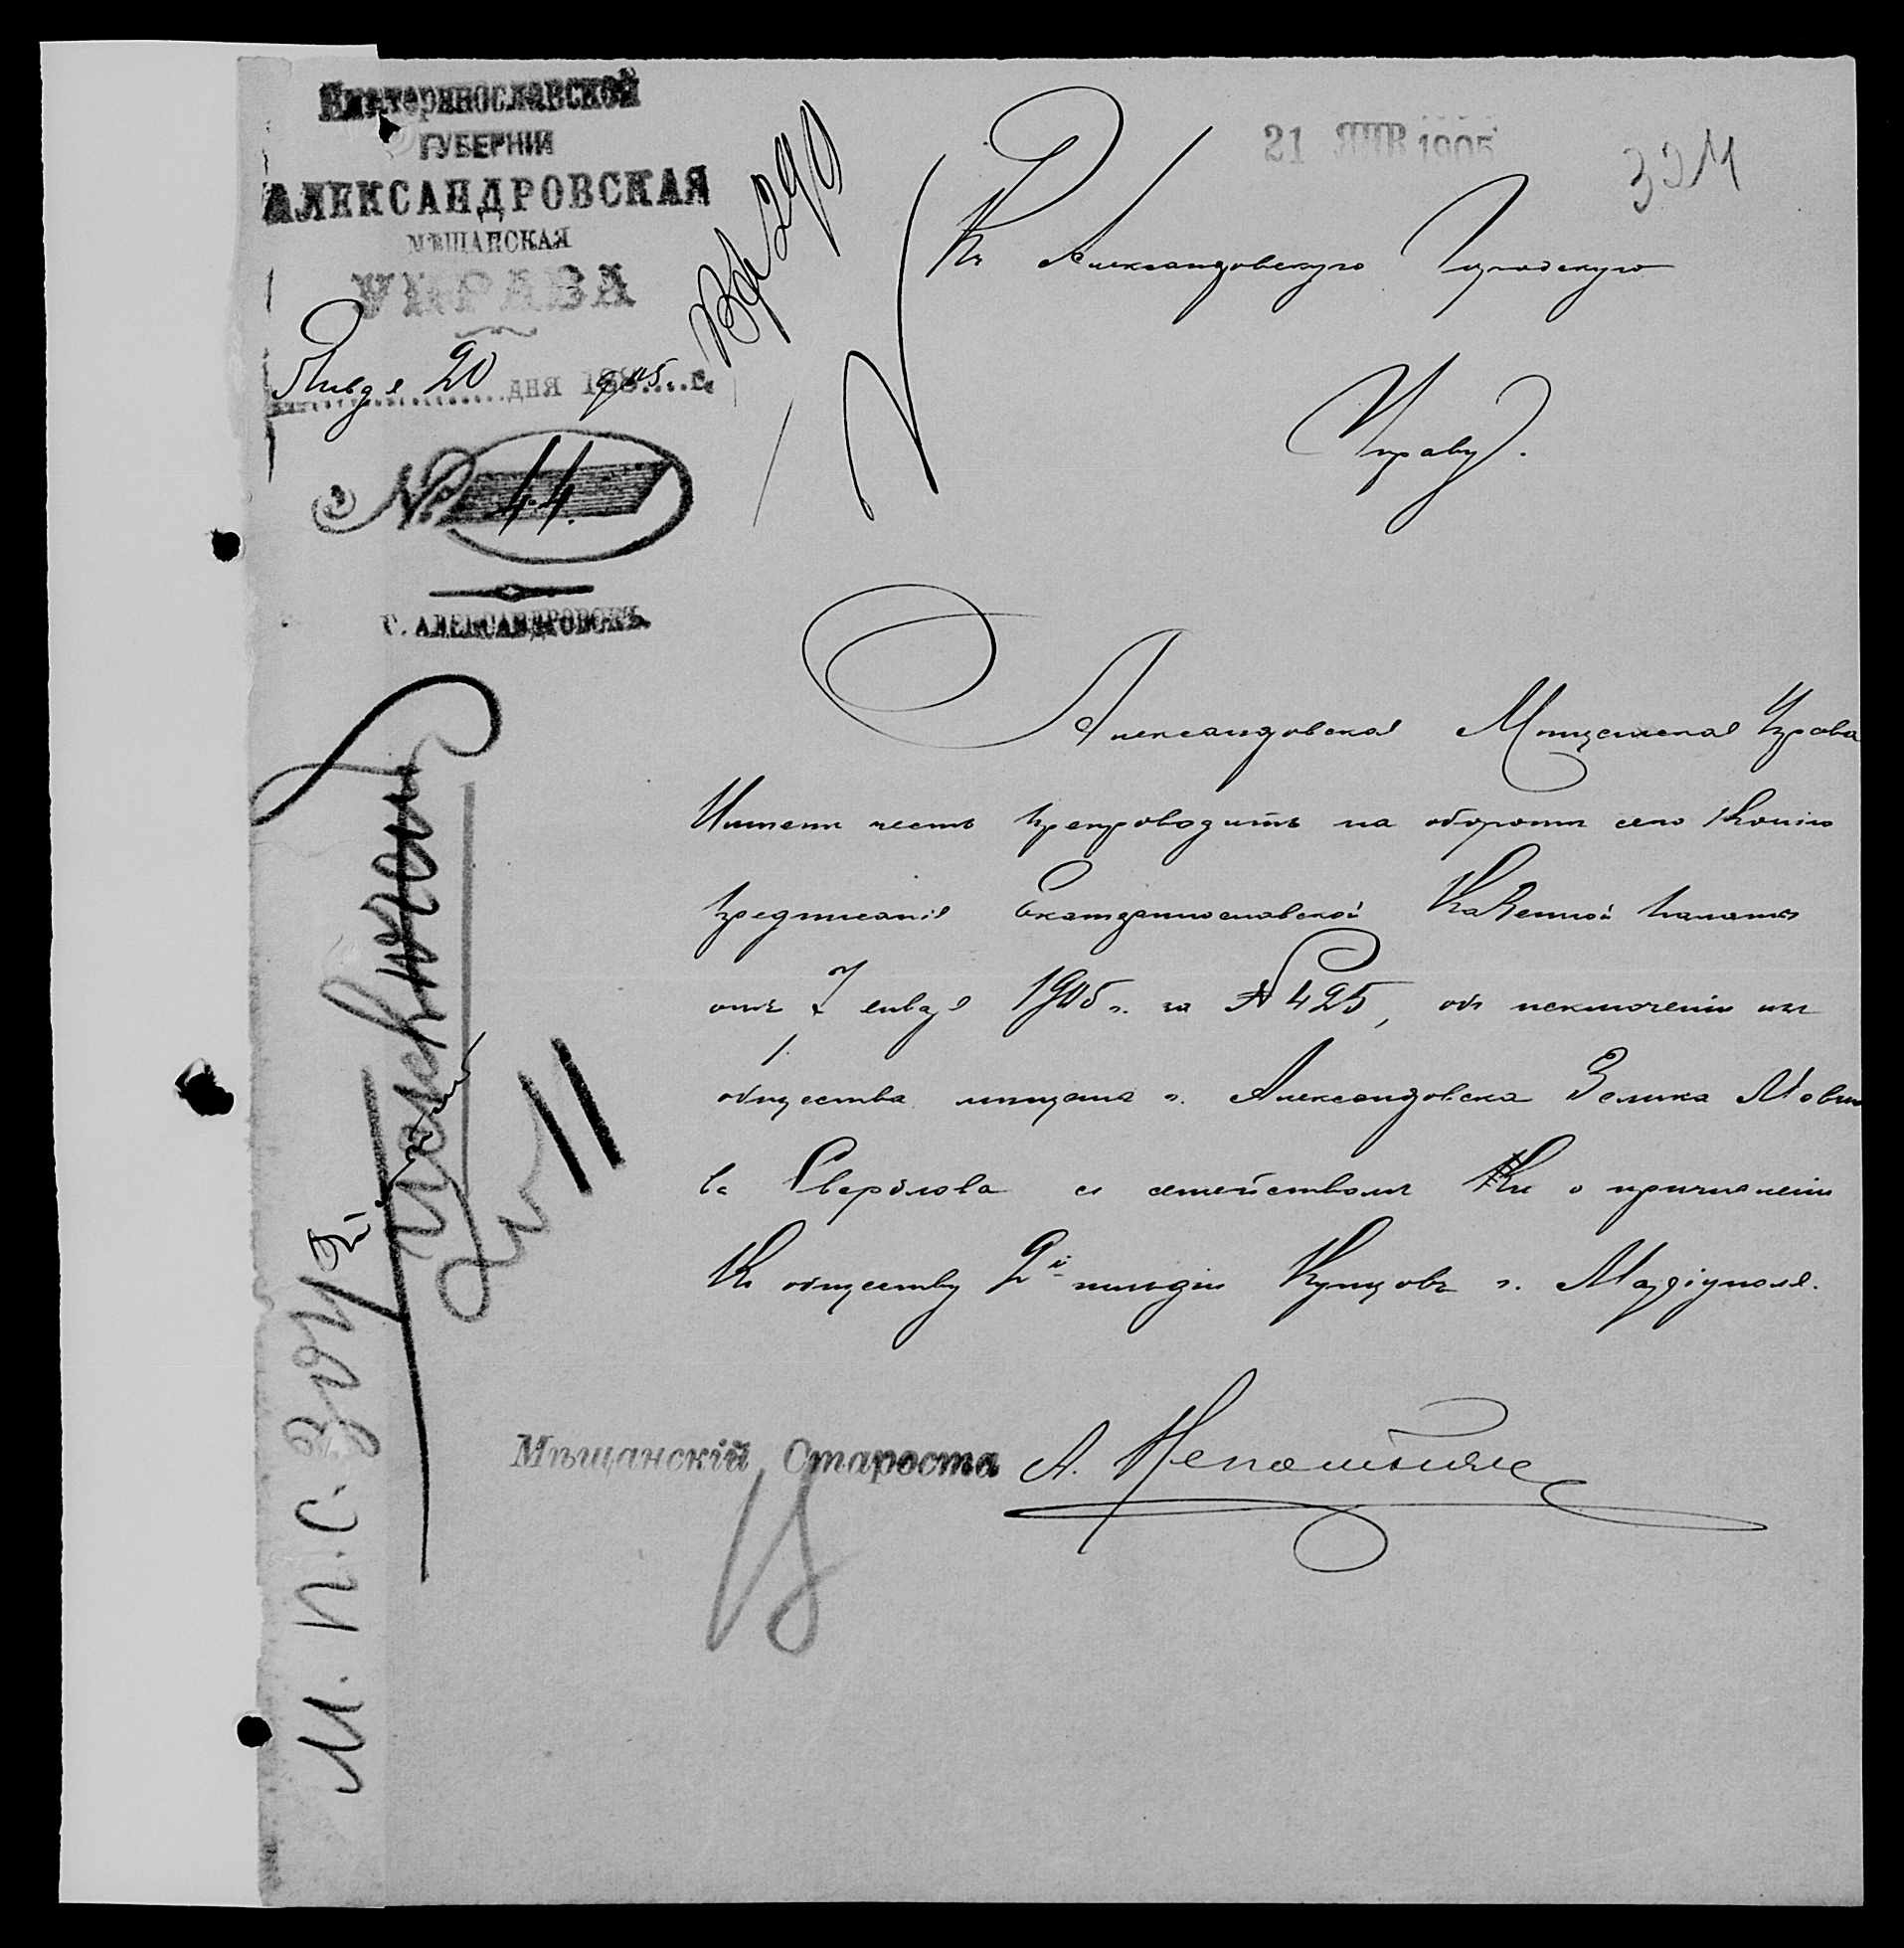 Екатеринославской
ГУБЕРНІИ
АЛЕКСАНДРОВСКАЯ
МѢЩАНСКАЯ
УПРАВА
Января 20 дня 1905 г.
№ 44.
Г. АЛЕКСАНДРОВСКЪ
21 ЯНВ 1905
Въ Александровскую Городскую
Управу.
Александровская Мещанская Управа
Имеетъ честь препроводить на обороте сего Копію
предписанія Екатеринославской Казенной палаты
отъ 7 января 1905 г. за № 425, объ исключеніи изъ
общества мещана г. Александровска Зелика Мовше
ва Свердлова съ семействомъ и о причисленіи
Къ обществу 2й гильдіи Купцовъ г. Маріуполя.
Мѣщанскій Староста А.
М. П. С.